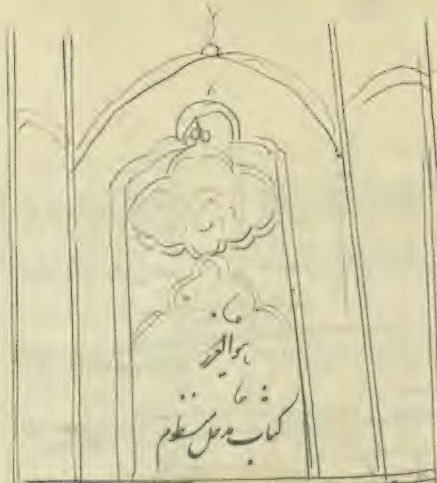 هوالعزیز
کتاب مدخل منظوم